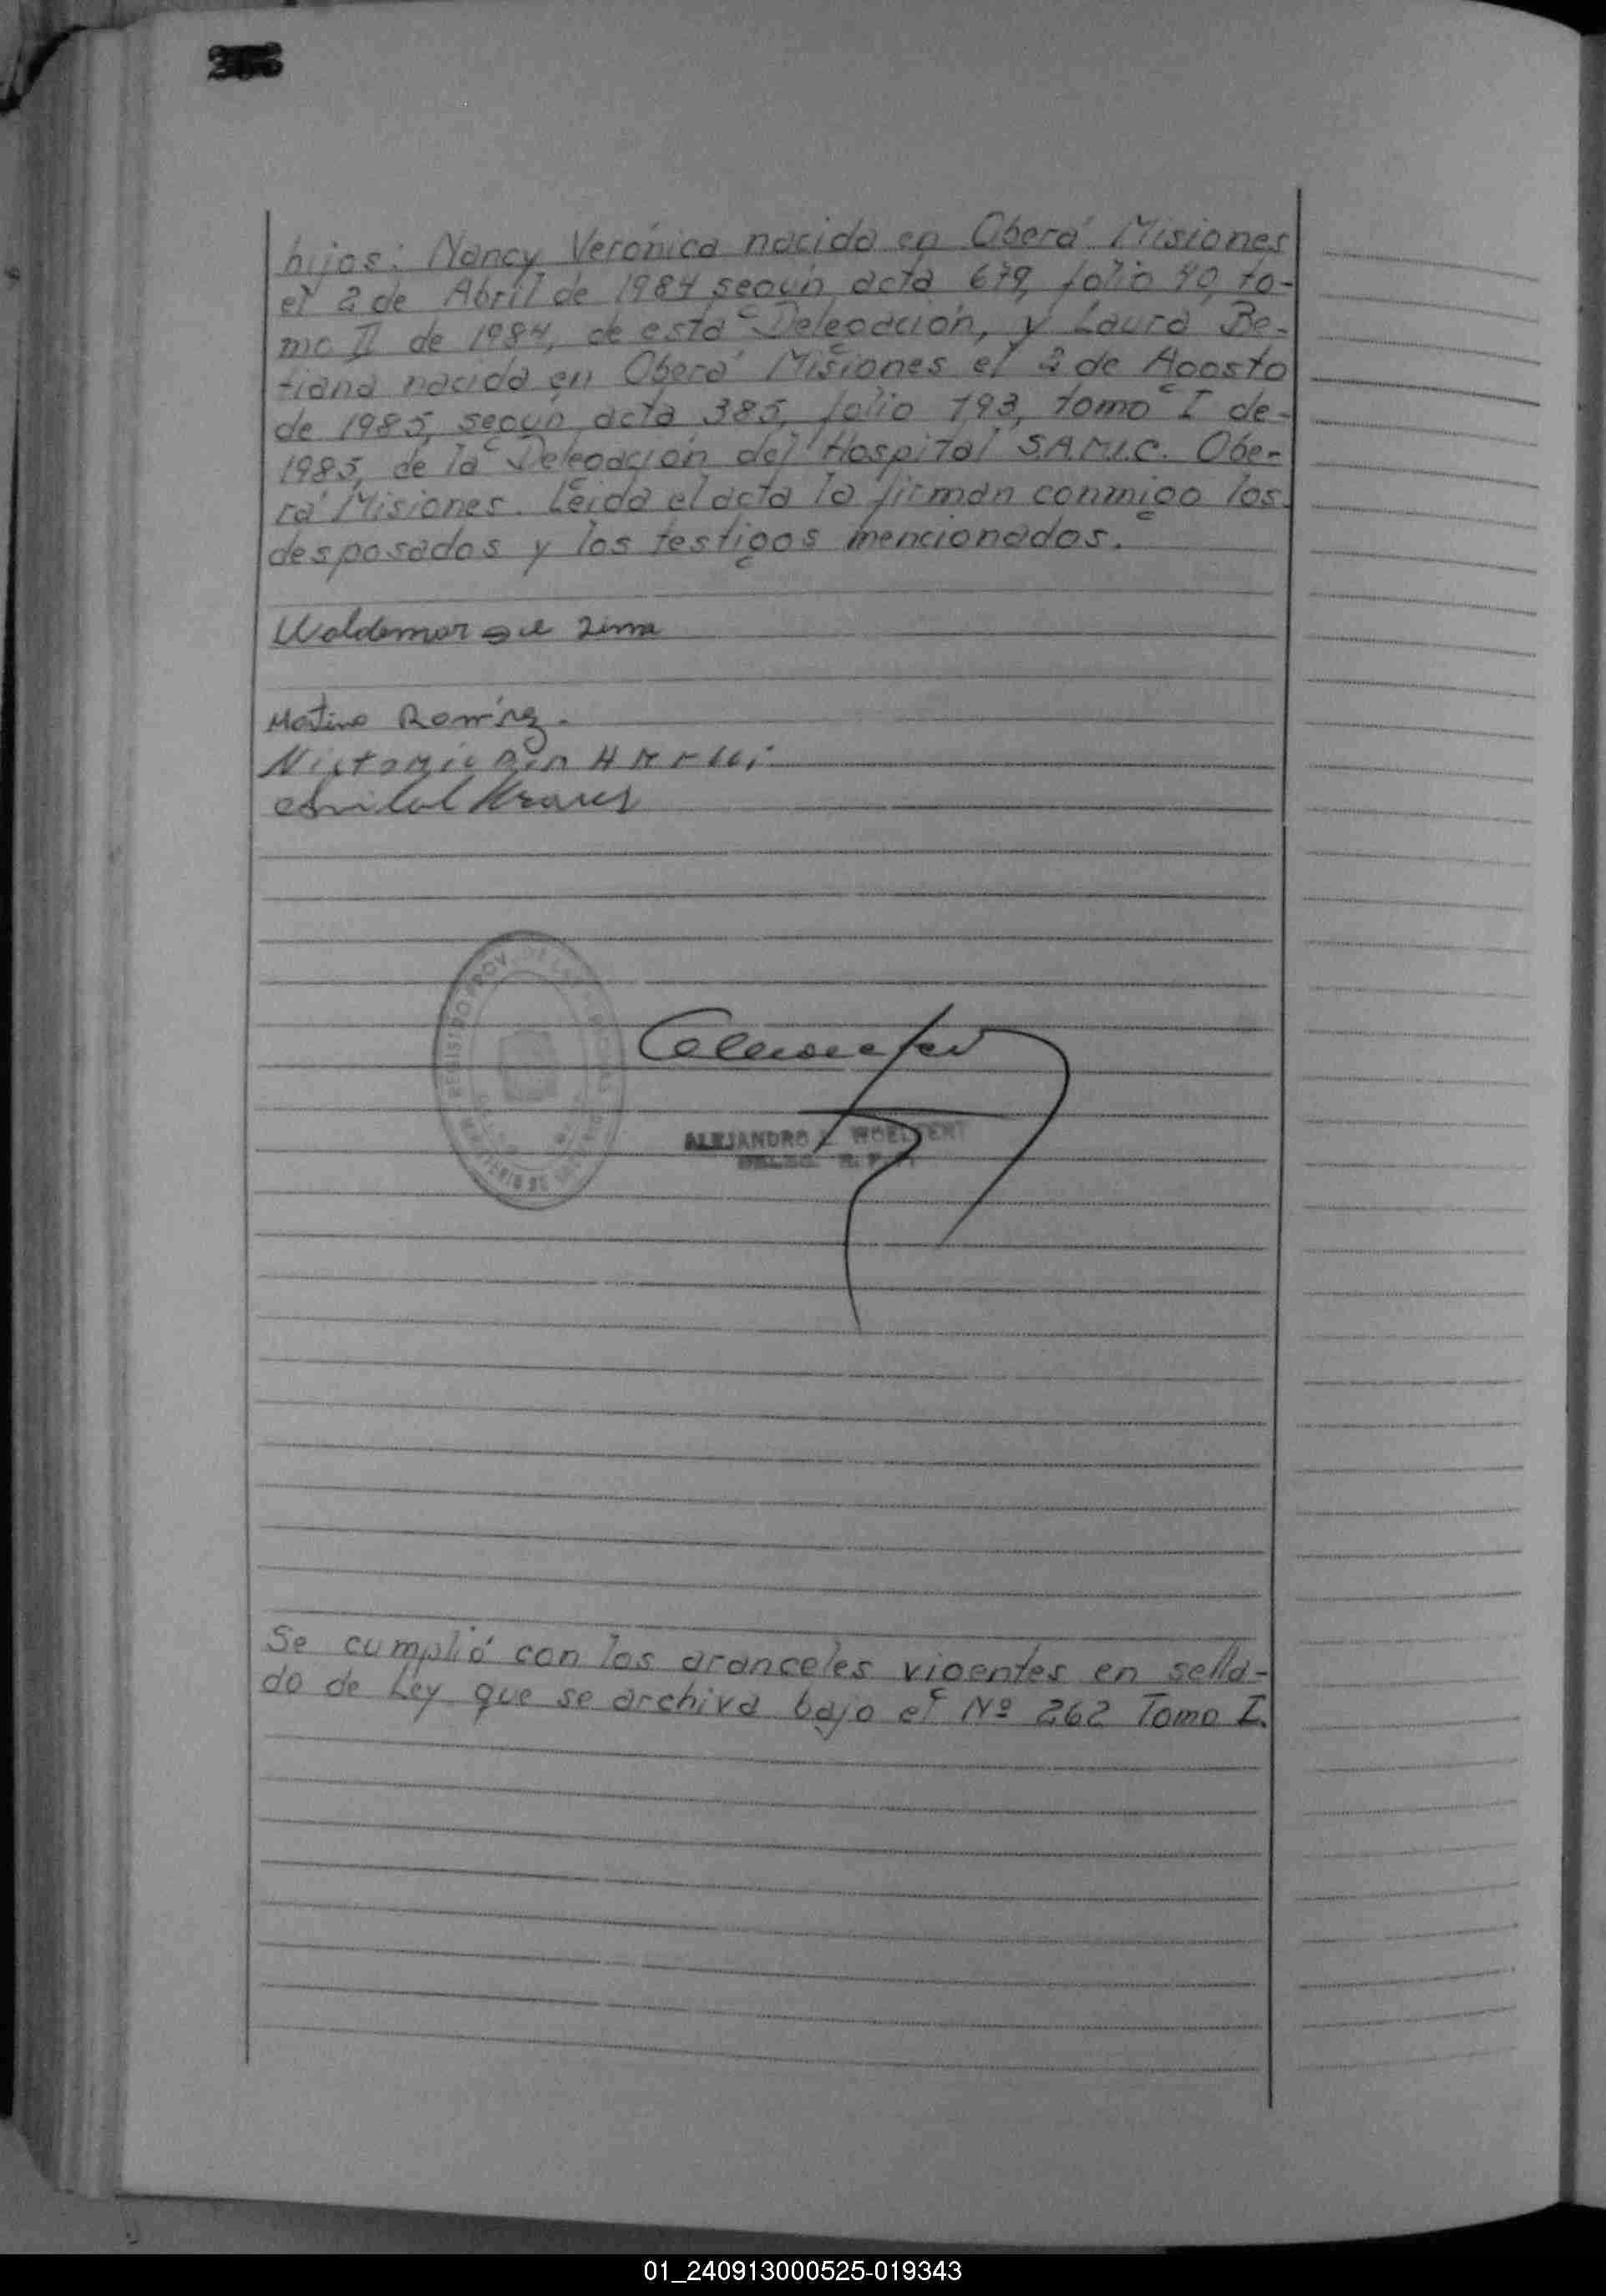 hijos: Nancy Verónica nacida en Oberá Misiones
el 2 de Abril de 1984 según acta 679, folio 40, to-
mo II de 1984, de esta Delegación, y Laura Be-
tiana nacida en Oberá Misiones el 2 de Agosto
de 1985, según acta 385, folio 193, tomo I de-
1985, de la Delegación del Hospital S.A.M.I.C. Obe-
rá Misiones. Leida el acta la firman conmigo los
desposados y los testigos mencionados.
Waldemar de Lima
Martina Ramírez.
Kraus
REGISTRO PROV. DE LAS
MINISTERIO DE
ALEJANDRO WOELFERT
DELEG. R. P. P.
Se cumplió con los aranceles vigentes en sella-
do de Ley que se archiva bajo el Nº 262 Tomo I.
01_240913000525-019343